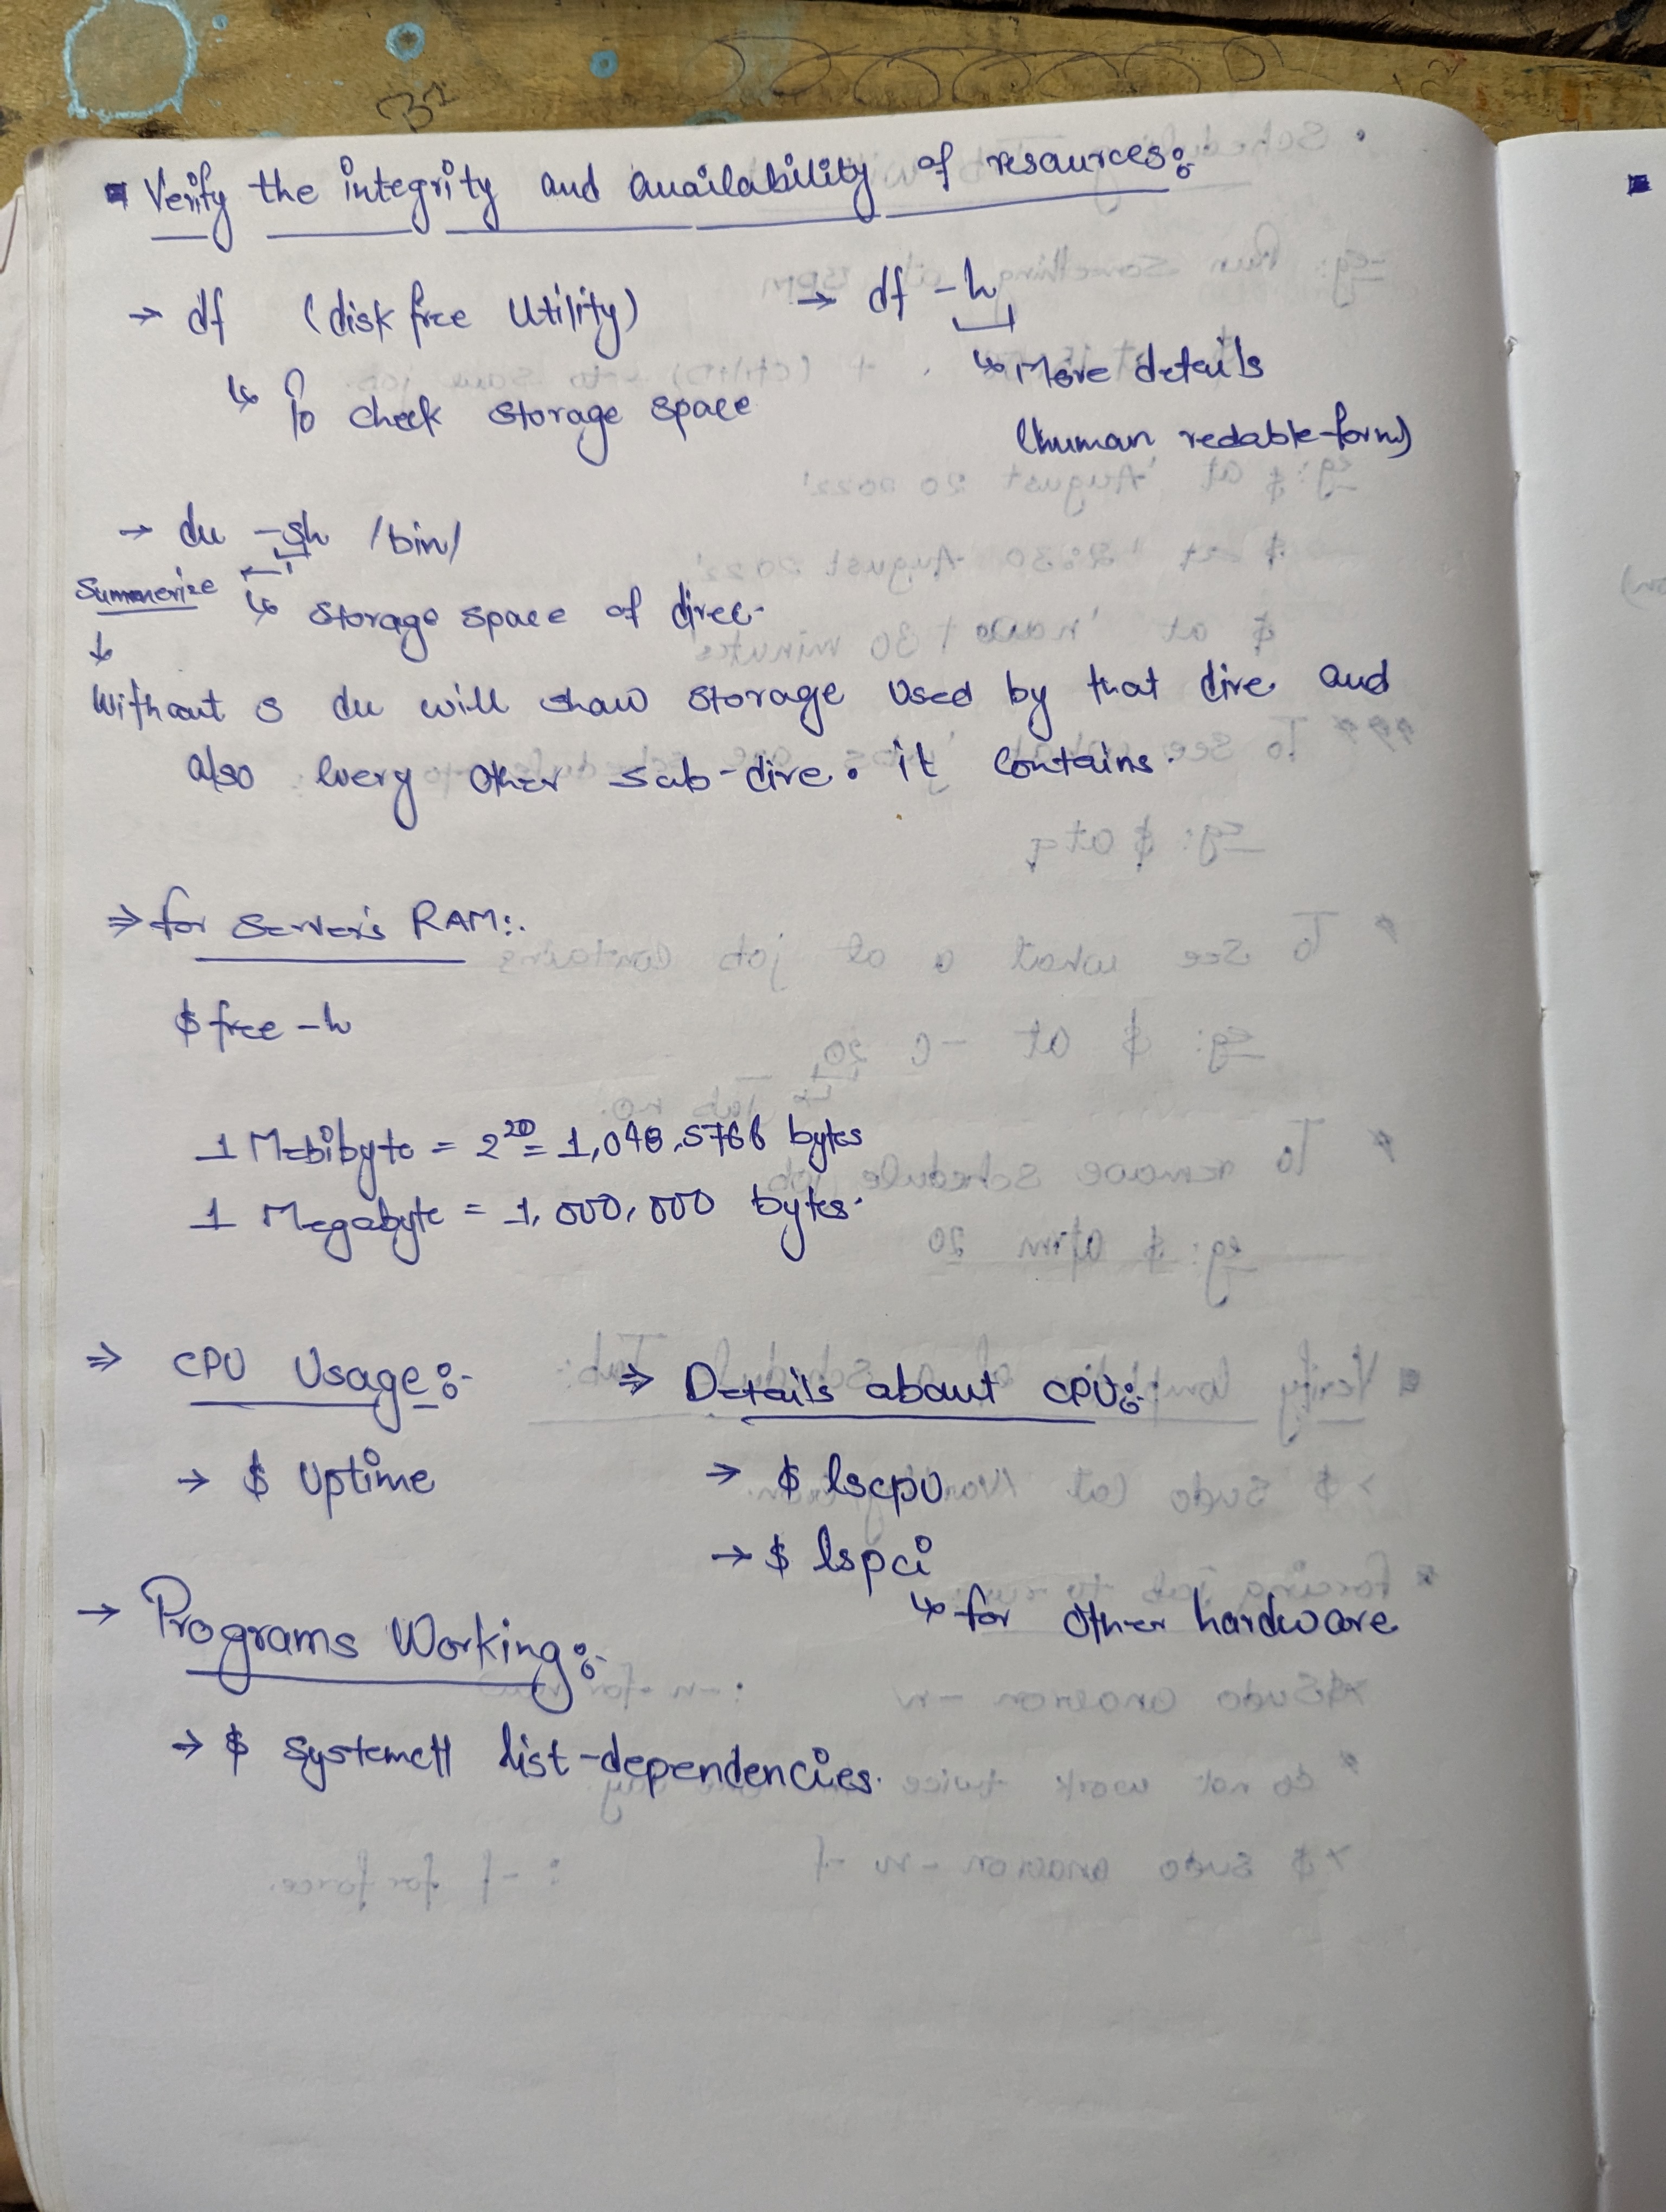 ▪ Verify the integrity and availability of resources:-
→ df (disk free Utility) → df -h
↳ To check storage space ↳ More details
(human redable-form)
→ du -sh /bin/
Summerize ↳ storage space of direc-
↓
Without s du will show storage used by that dire and
also every other sub-dire. it contains.
⇒ for server's RAM:-
$ free -h
1 Mebibyte = 2^20 = 1,048,5766 bytes
1 Megabyte = 1,000,000 bytes.
⇒ CPU Usage:- ⇒ Details about CPU:-
→ $ uptime → $ lscpu
→ $ lspci
→ Programs Working:- ↳ for other hardware
→ $ systemctl list-dependencies.